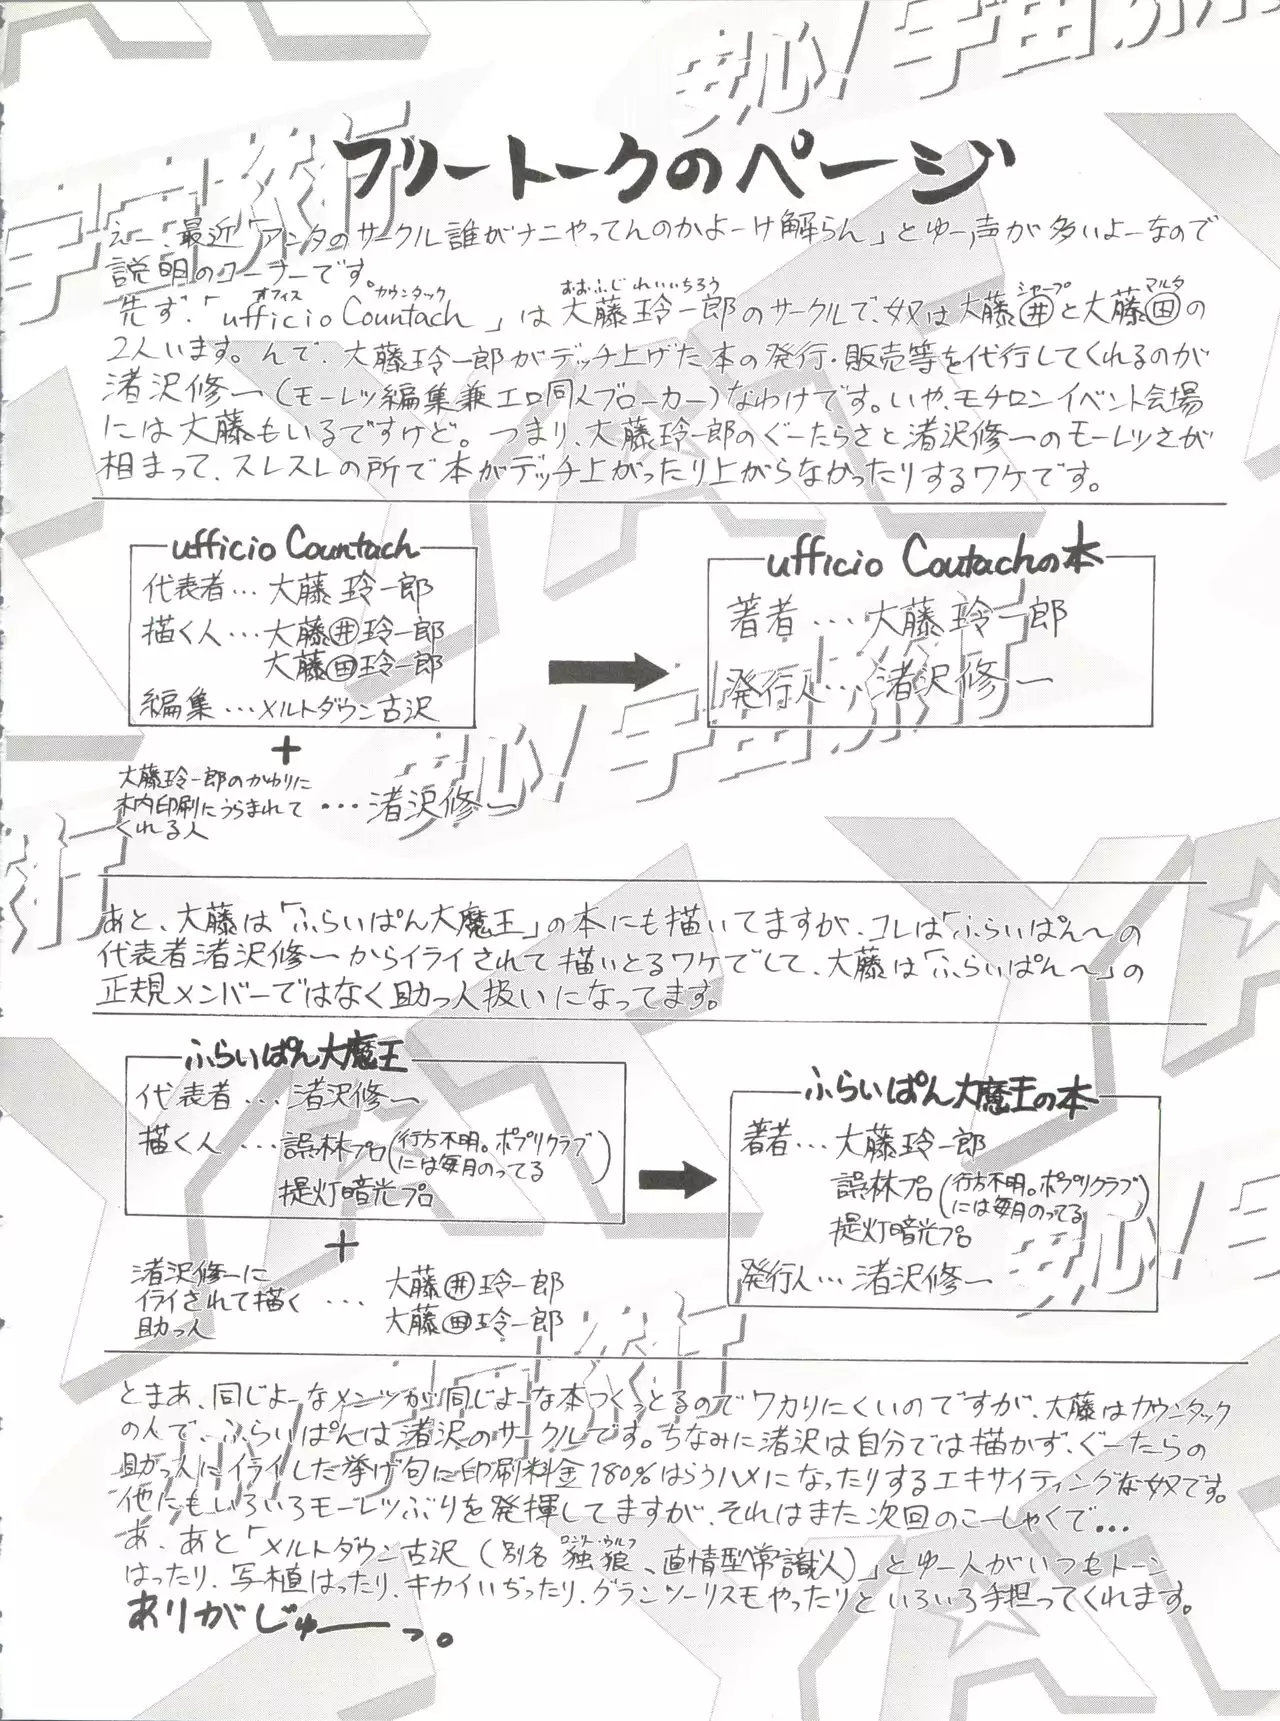 フリートークのページ
えー、最近「アンタのサークル誰がナニやってんのかよーけ解らん」とゆー声が多いよーなので
説明のコーナーです。
オフィス カウンタック おおふじ れいいちろう シャープ マルタ
先ず、「ufficio Countach」は大藤玲一郎のサークルで、奴は大藤㊉と大藤田の
2人います。んで、大藤玲一郎がデッチ上げた本の発行・販売等を代行してくれるのが
渚沢修一(モーレツ編集兼エロ同人ブローカー)なわけです。いや、モチロンイベント会場
には大藤もいるですけど。つまり、大藤玲一郎のぐーたらさと渚沢修一のモーレツさが
相まって、スレスレの所で本がデッチ上がったり上がらなかったりするワケです。
ufficio Countach
代表者…大藤玲一郎
描く人…大藤井玲一郎
大藤田玲一郎
編集…メルトダウン古沢
+
大藤玲一郎のかわりに
木内印刷にうらまれて
くれる人
…渚沢修一
ufficio Coutachの本
著者…大藤玲一郎
発行人…渚沢修一
あと、大藤は「ふらいぱん大魔王」の本にも描いてますが、コレは「ふらいぱん〜の
代表者渚沢修一からイライされて描いとるワケでして、大藤は「ふらいぱん〜」の
正規メンバーではなく助っ人扱いになってます。
ふらいぱん大魔王
代表者…渚沢修一
描く人…誤林プロ(行方不明。ポプリクラブ
には毎月のってる)
提灯暗光プロ
+
渚沢修一に
イライされて描く
助っ人
…大藤井玲一郎
大藤田玲一郎
ふらいぱん大魔王の本
著者…大藤玲一郎
誤林プロ(行方不明。ポプリクラブ
には毎月のってる)
提灯暗光プロ
発行人…渚沢修一
とまあ、同じよーなメンツが同じよーな本つくっとるのでワカりにくいのですが、大藤はカウンタック
の人で、ふらいぱんは渚沢のサークルです。ちなみに渚沢は自分では描かず、ぐーたらの
助っ人にイライした挙げ句に印刷料金180%はらうハメになったりするエキサイティングな奴です。
他にもいろいろモーレツぶりを発揮してますが、それはまた次回のこーしゃくで…
ロンリー・ウルフ
あ、あと「メルトダウン古沢(別名 独狼、直情型常識人)」とゆー人がいつもトーン
はったり、写植はったり、キカイいぢったり、グランツーリスモやったりといろいろ手担ってくれます。
ありがじゅーっ。
安心！宇宙旅行
YAT